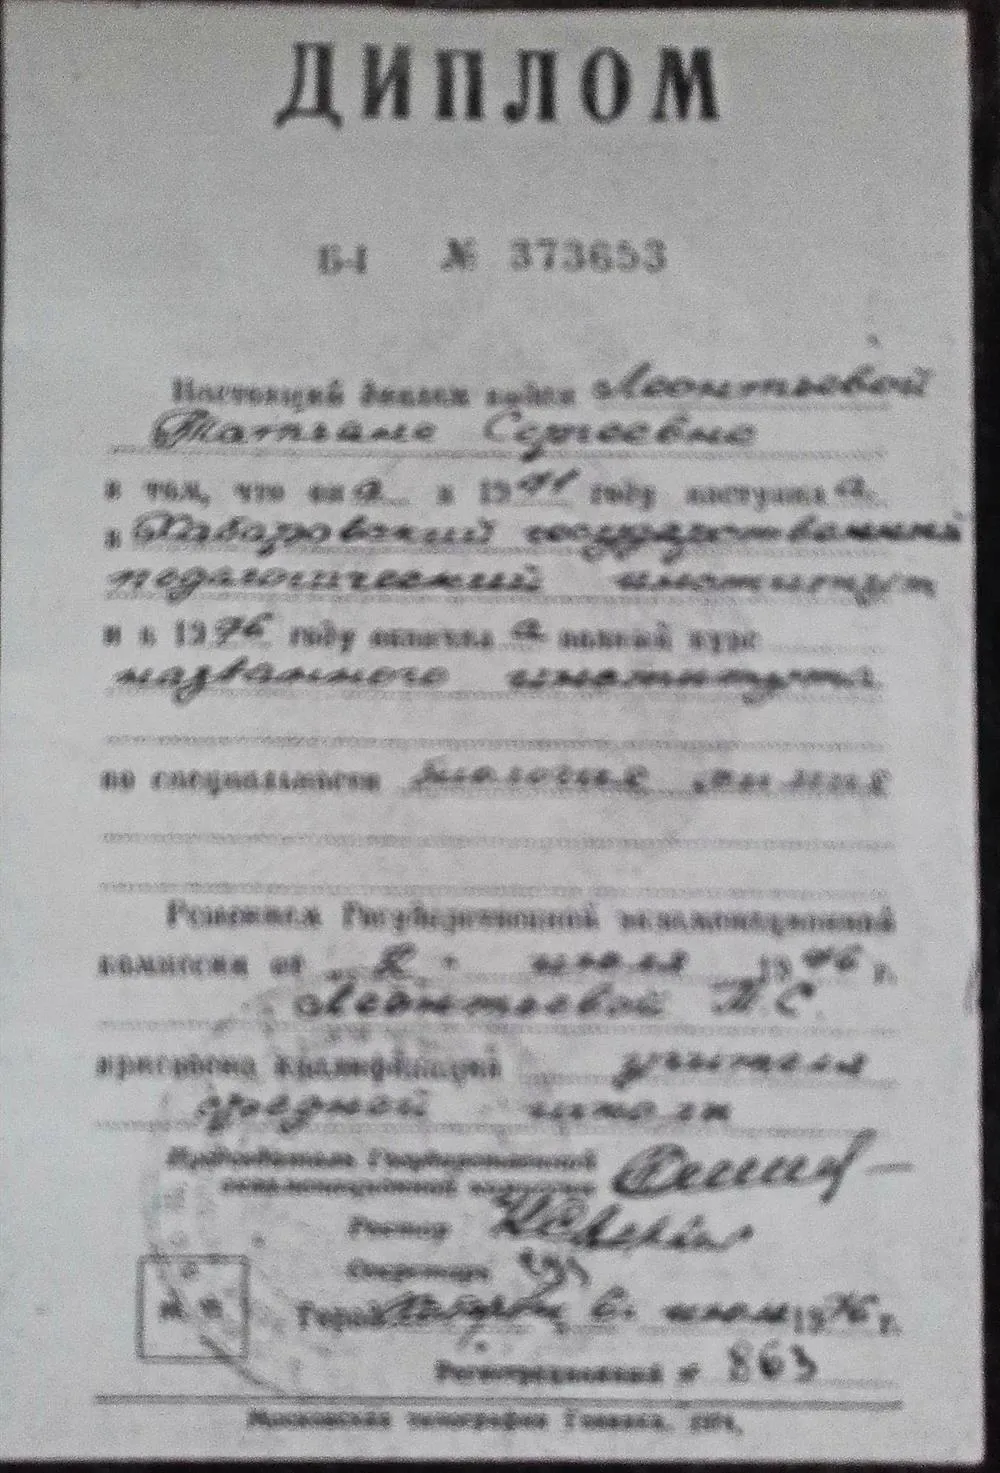 ДИПЛОМ
Б-I № 373653
Настоящий диплом выдан Леонтьевой
Татьяне Сергеевне
в том, что он а в 1971 году поступил а
в Хабаровский государственный
педагогический институт
и в 1976 году окончил а полный курс
названного института
по специальности биология химия
Решением Государственной экзаменационной
комиссии от „2" июля 1976 г.
Леонтьевой Т. С.
присвоена квалификация учителя
средней школы
Председатель Государственной
экзаменационной комиссии
Ректор
Секретарь
Город июля 1976 г.
Регистрационный № 863
М. П.
Московская типография Гознака. 1974.